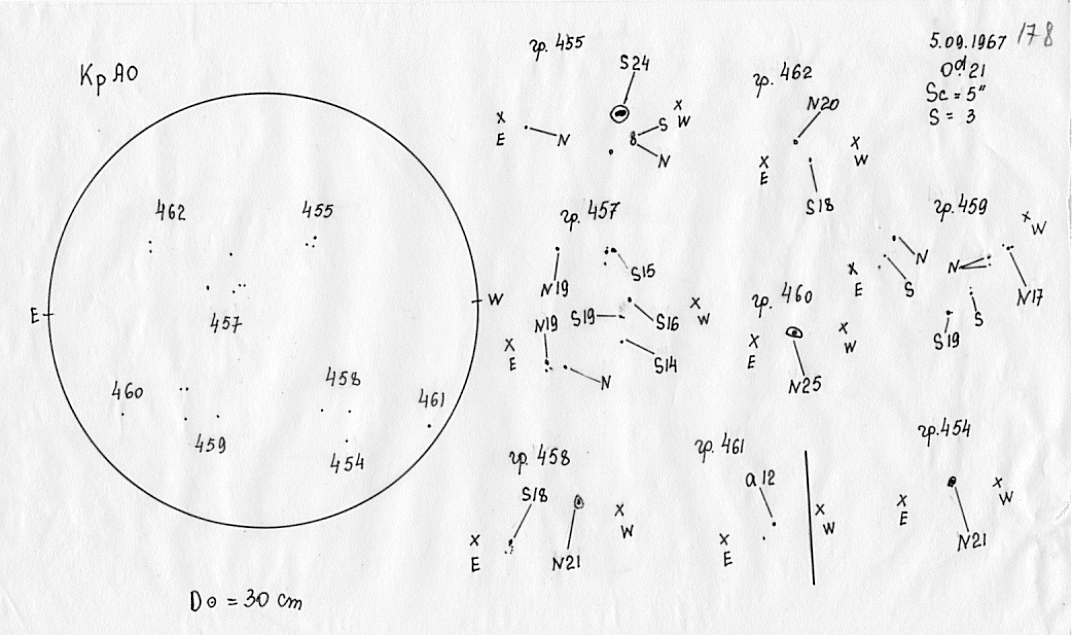 5.09.1967 178
0ᵈ.21
Sc = 5"
S = 3
КрАО
462
455
E
W
457
460
458
461
459
454
D⊙ = 30 cm
гр. 455
S24
x
E
N
S
x
W
N
гр. 462
N20
x
E
x
W
S18
гр. 457
S15
N19
S19
S16
x
W
N19
x
E
S14
N
гр. 460
x
E
x
W
N25
гр. 459
x
W
N
N
x
E
S
N17
S
S19
гр. 458
S18
x
E
x
W
N21
гр. 461
a12
x
E
x
W
гр. 454
x
E
x
W
N21